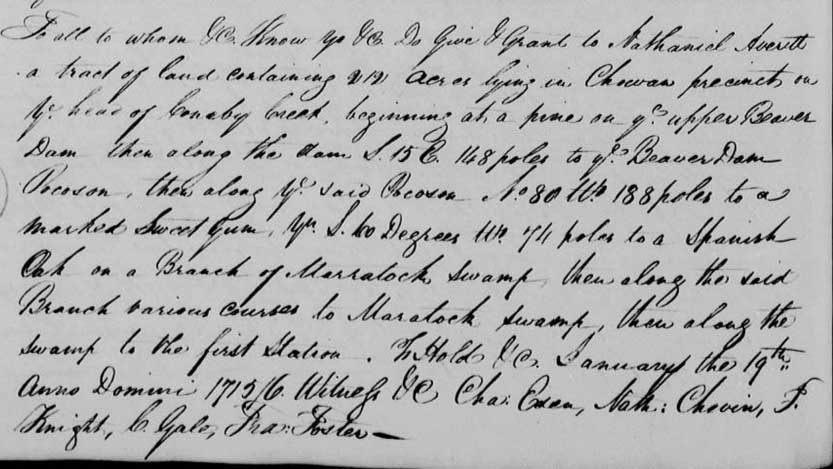 To all to whom &C. Know ye &C Do Give & Grant to Nathaniel Averitt
a tract of land containing 212 acres lying in Chowan precinct on
ye. head of Conaby Creek, beginning at a pine on ye. upper Beaver
Dam then along the dam S. 15 E. 148 poles to ye. Beaver Dam
Pocoson, then along ye. said Pocoson No. 80 Wt. 188 poles to a
marked Sweet gum, yn S. 60 Degrees Wt. 74 poles to a Spanish
Oak on a Branch of Marratock swamp, then along the said
Branch various courses to Maratock swamp, then along the
swamp to the first Station. To Hold &C. January the 19th..
Anno Domini 1715/6. Witness &C Cha: Eden, Nath: Chevin, T.
Knight, C. Gale, Fra: Foster —